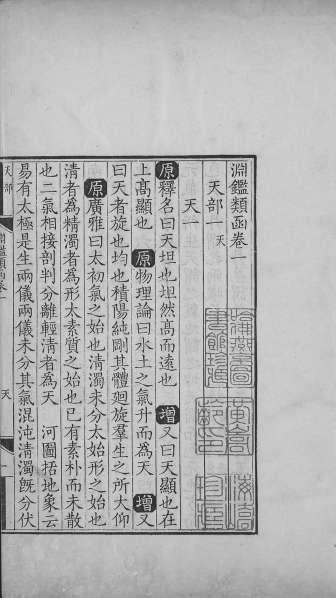 淵鑑類函卷一
天部一 天
天一
原釋名曰天坦也坦然高而遠也 增又曰天顯也在
上高顯也 原物理論曰水土之氣升而為天 增又
曰天者旋也均也積陽純剛其體迴旋羣生之所大仰
原廣雅曰太初氣之始也清濁未分太始形之始也
清者為精濁者為形太素質之始也已有素朴而未散
也二氣相接剖判分離輕清者為天 河圖括地象云
易有太極是生兩儀兩儀未分其氣混沌清濁既分伏
天部
淵鑑類函卷一
天
一